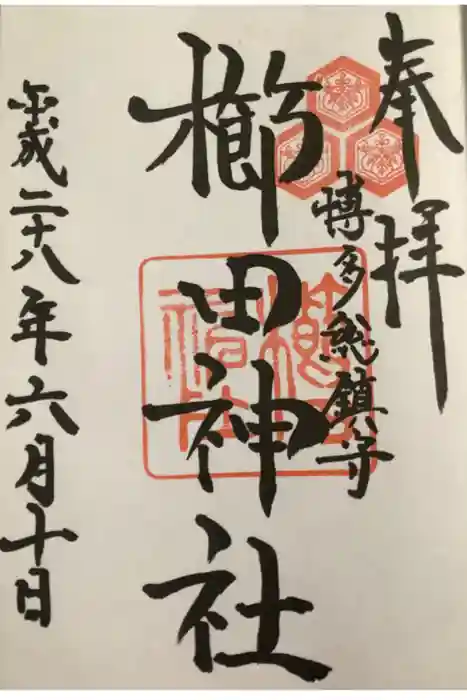 奉拝
博多総鎮守
櫛田神社
平成二十八年六月十日